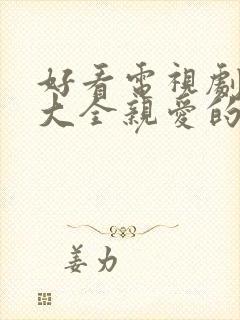 好看電視劇
大全親愛的
姜力